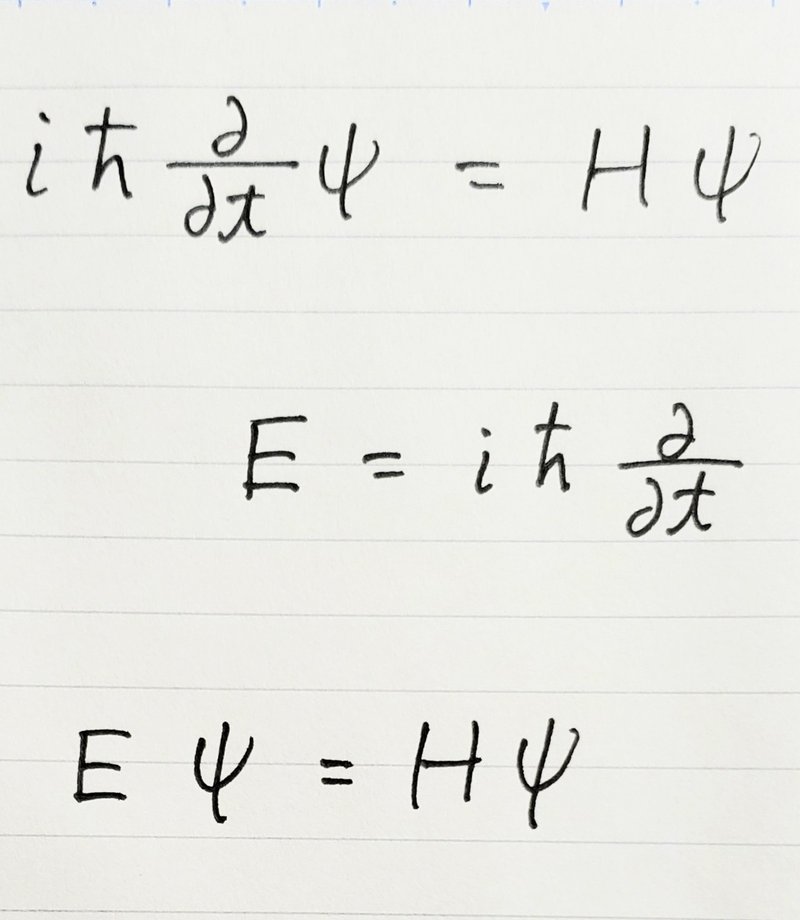 iħ ∂/∂t ψ = Hψ
E = iħ ∂/∂t
Eψ = Hψ